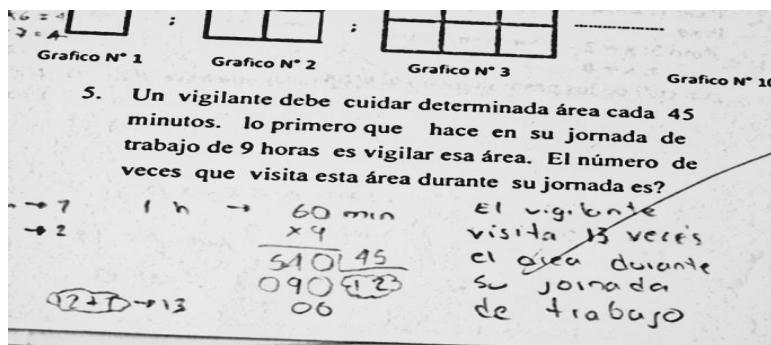 Grafico N° 1
Grafico N° 2
Grafico N° 3
Grafico N° 1
5. Un vigilante debe cuidar determinada área cada 45
minutos. lo primero que hace en su jornada de
trabajo de 9 horas es vigilar esa área. El número de
veces que visita esta área durante su jornada es?
→ 7
→ 2
1 h → 60 min
× 9
540 45
090 12
00
12+1 → 13
El vigilante
visita 13 veces
el area durante
su jornada
de trabajo